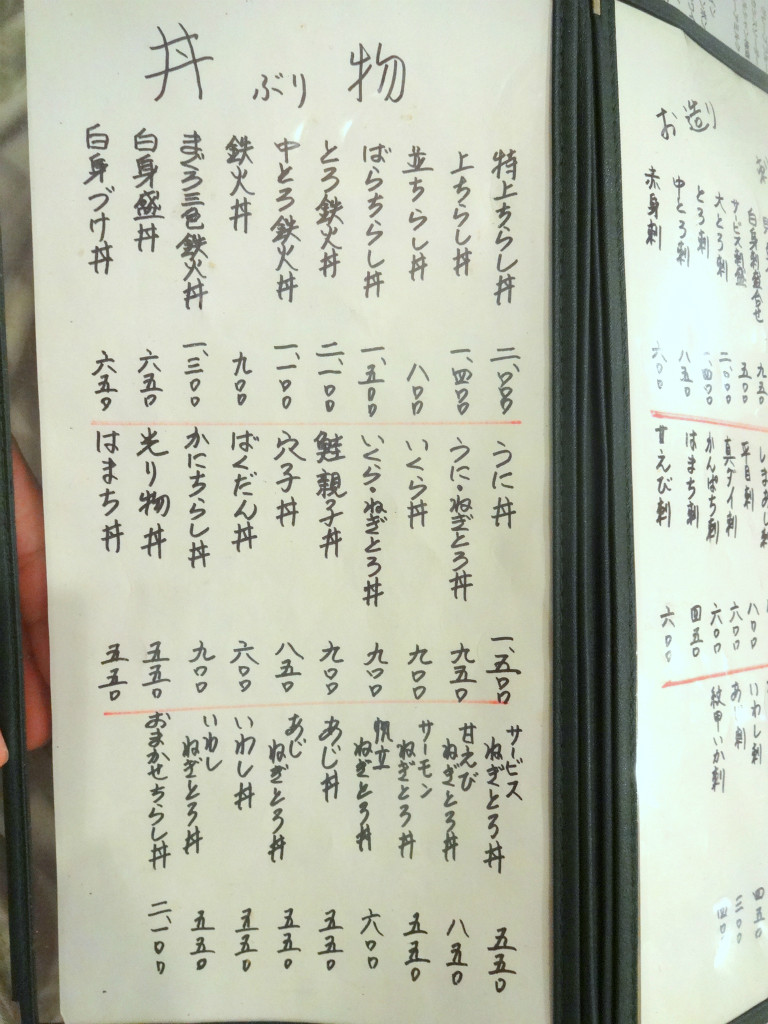 丼ぶり物
特上ちらし丼 二、〇〇〇
上ちらし丼 一、四〇〇
並ちらし丼 八〇〇
ばらちらし丼 一、五〇〇
とろ鉄火丼 二、一〇〇
中とろ鉄火丼 一、一〇〇
鉄火丼 九〇〇
まぐろ三色鉄火丼 一、三〇〇
白身盛丼 六五〇
白身づけ丼 六五〇
うに丼 一、五〇〇
うに・ねぎとろ丼 九五〇
いくら丼 九〇〇
いくら・ねぎとろ丼 九〇〇
鮭親子丼 九〇〇
穴子丼 八五〇
ばくだん丼 六〇〇
かにちらし丼 九〇〇
光り物丼 五五〇
はまち丼 五五〇
サービスねぎとろ丼 五五〇
甘えびねぎとろ丼 八五〇
サーモンねぎとろ丼 五五〇
帆立ねぎとろ丼 六〇〇
あじ丼 五五〇
あじねぎとろ丼 五五〇
いわし丼 五五〇
いわしねぎとろ丼 五五〇
おまかせちらし丼 二、一〇〇
お造り
白身刺盛合せ 九五〇
サービス刺盛 五〇〇
大とろ刺 二、〇〇〇
とろ刺 一、四〇〇
中とろ刺 八五〇
赤身刺 六〇〇
しまあじ刺
平目刺 八〇〇
真ダイ刺 六〇〇
かんぱち刺 六〇〇
はまち刺 四五〇
甘えび刺 六〇〇
いわし刺 四五〇
あじ刺 三〇〇
紋甲いか刺 四〇〇